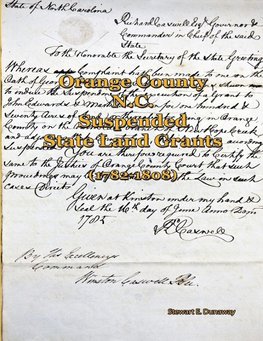 State of North Carolina
Richard Caswell Esqr. Governor &
Commander in Chief of the said
State
To the Honorable the Secretary of the State Greeting
Whereas Complaint hath been made to me on the
Oath of
Orange County
to endure the of a grant to
N.C.
John Edwards for one hundred &
Seventy Acres of in Orange
Suspended
County on the Creek
and
State Land Grants
You are therefore required to Certify the
same to the of Orange County that such
(1782-1808)
proceedings may the Law in such
cases directs
Given at Kinston under my hand &
Seal the 16th day of June Anno Dom
1785
Rd Caswell
By His Excellencys
Command
Winston Caswell
Stewart E. Dunaway